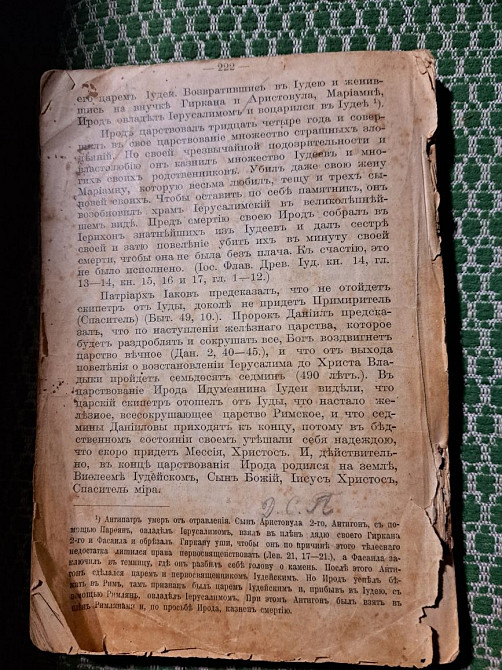 — 222 —
его царемъ Іудей. Возвратившись въ Іудею и женив-
шись на внучкѣ Гиркана и Аристовула, Маріамнѣ,
Иродъ овладѣлъ Іерусалимомъ и воцарился въ Іудеѣ ¹).
Иродъ царствовалъ тридцать четыре года и совер-
шилъ въ свое царствованіе множество страшныхъ зло-
дѣяній. По своей чрезвычайной подозрительности и
властолюбію онъ казнилъ множество Іудеевъ и мно-
гихъ своихъ родственниковъ. Убилъ даже свою жену
Маріамну, которую весьма любилъ, тещу и трехъ сы-
новей своихъ. Чтобы оставить по себѣ памятникъ, онъ
возобновилъ храмъ Іерусалимскій въ великолѣпнѣй-
шемъ видѣ. Предъ смертію своею Иродъ собралъ въ
Іерихонъ знатнѣйшихъ изъ Іудеевъ и далъ сестрѣ
своей и зятю повелѣніе убить ихъ въ минуту своей
смерти, чтобы она не была безъ плача. Къ счастію, это
не было исполнено. (Іос. Флав. Древ. Іуд. кн. 14, гл.
13—14, кн. 15, 16 и 17, гл. 1—12.)
Патріархъ Іаковъ предсказалъ, что не отойдетъ
скипетръ отъ Іуды, доколѣ не придетъ Примиритель
(Спаситель) (Быт. 49, 10.). Пророкъ Даніилъ предска-
залъ, что по наступленіи желѣзнаго царства, которое
будетъ раздроблять и сокрушать все, Богъ воздвигнетъ
царство вѣчное (Дан. 2, 40—45.), и что отъ выхода
повелѣнія о возстановленіи Іерусалима до Христа Вла-
дыки пройдетъ семьдесятъ седминъ (490 лѣтъ.). Въ
царствованіе Ирода Идумеянина Іудеи видѣли, что
царскій скипетръ отошелъ отъ Іуды, что настало же-
лѣзное, всесокрушающее царство Римское, и что сед-
мины Даніиловы приходятъ къ концу, потому въ бѣд-
ственномъ состояніи своемъ утѣшали себя надеждою,
что скоро придетъ Мессія, Христосъ. И, дѣйствитель-
но, въ концѣ царствованія Ирода родился на землѣ,
Виѳлеемѣ Іудейскомъ, Сынъ Божій, Іисусъ Христосъ,
Спаситель міра.
Д. С. П
¹) Антипатръ умеръ отъ отравленія. Сынъ Аристовула 2-го, Антигонъ, съ по-
мощью Парѳянъ, овладѣлъ Іерусалимомъ, взялъ въ плѣнъ дядю своего Гиркана
2-го и Фасаила и обрѣзалъ Гиркану уши, чтобы онъ по причинѣ этого тѣлеснаго
недостатка лишился права первосвященствовать (Лев. 21, 17—21.), а Фасаила за-
ключилъ въ темницу, гдѣ онъ разбилъ себѣ голову о камень. Послѣ этого Анти-
гонъ сдѣлался царемъ и первосвященникомъ Іудейскимъ. Но Иродъ успѣлъ бѣ-
жать въ Римъ, тамъ признанъ былъ царемъ Іудейскимъ и, прибывъ въ Іудею, съ
помощью Римлянъ, овладѣлъ Іерусалимомъ. При этомъ Антигонъ былъ взятъ въ
плѣнъ Римлянами и, по просьбѣ Ирода, казненъ смертію.